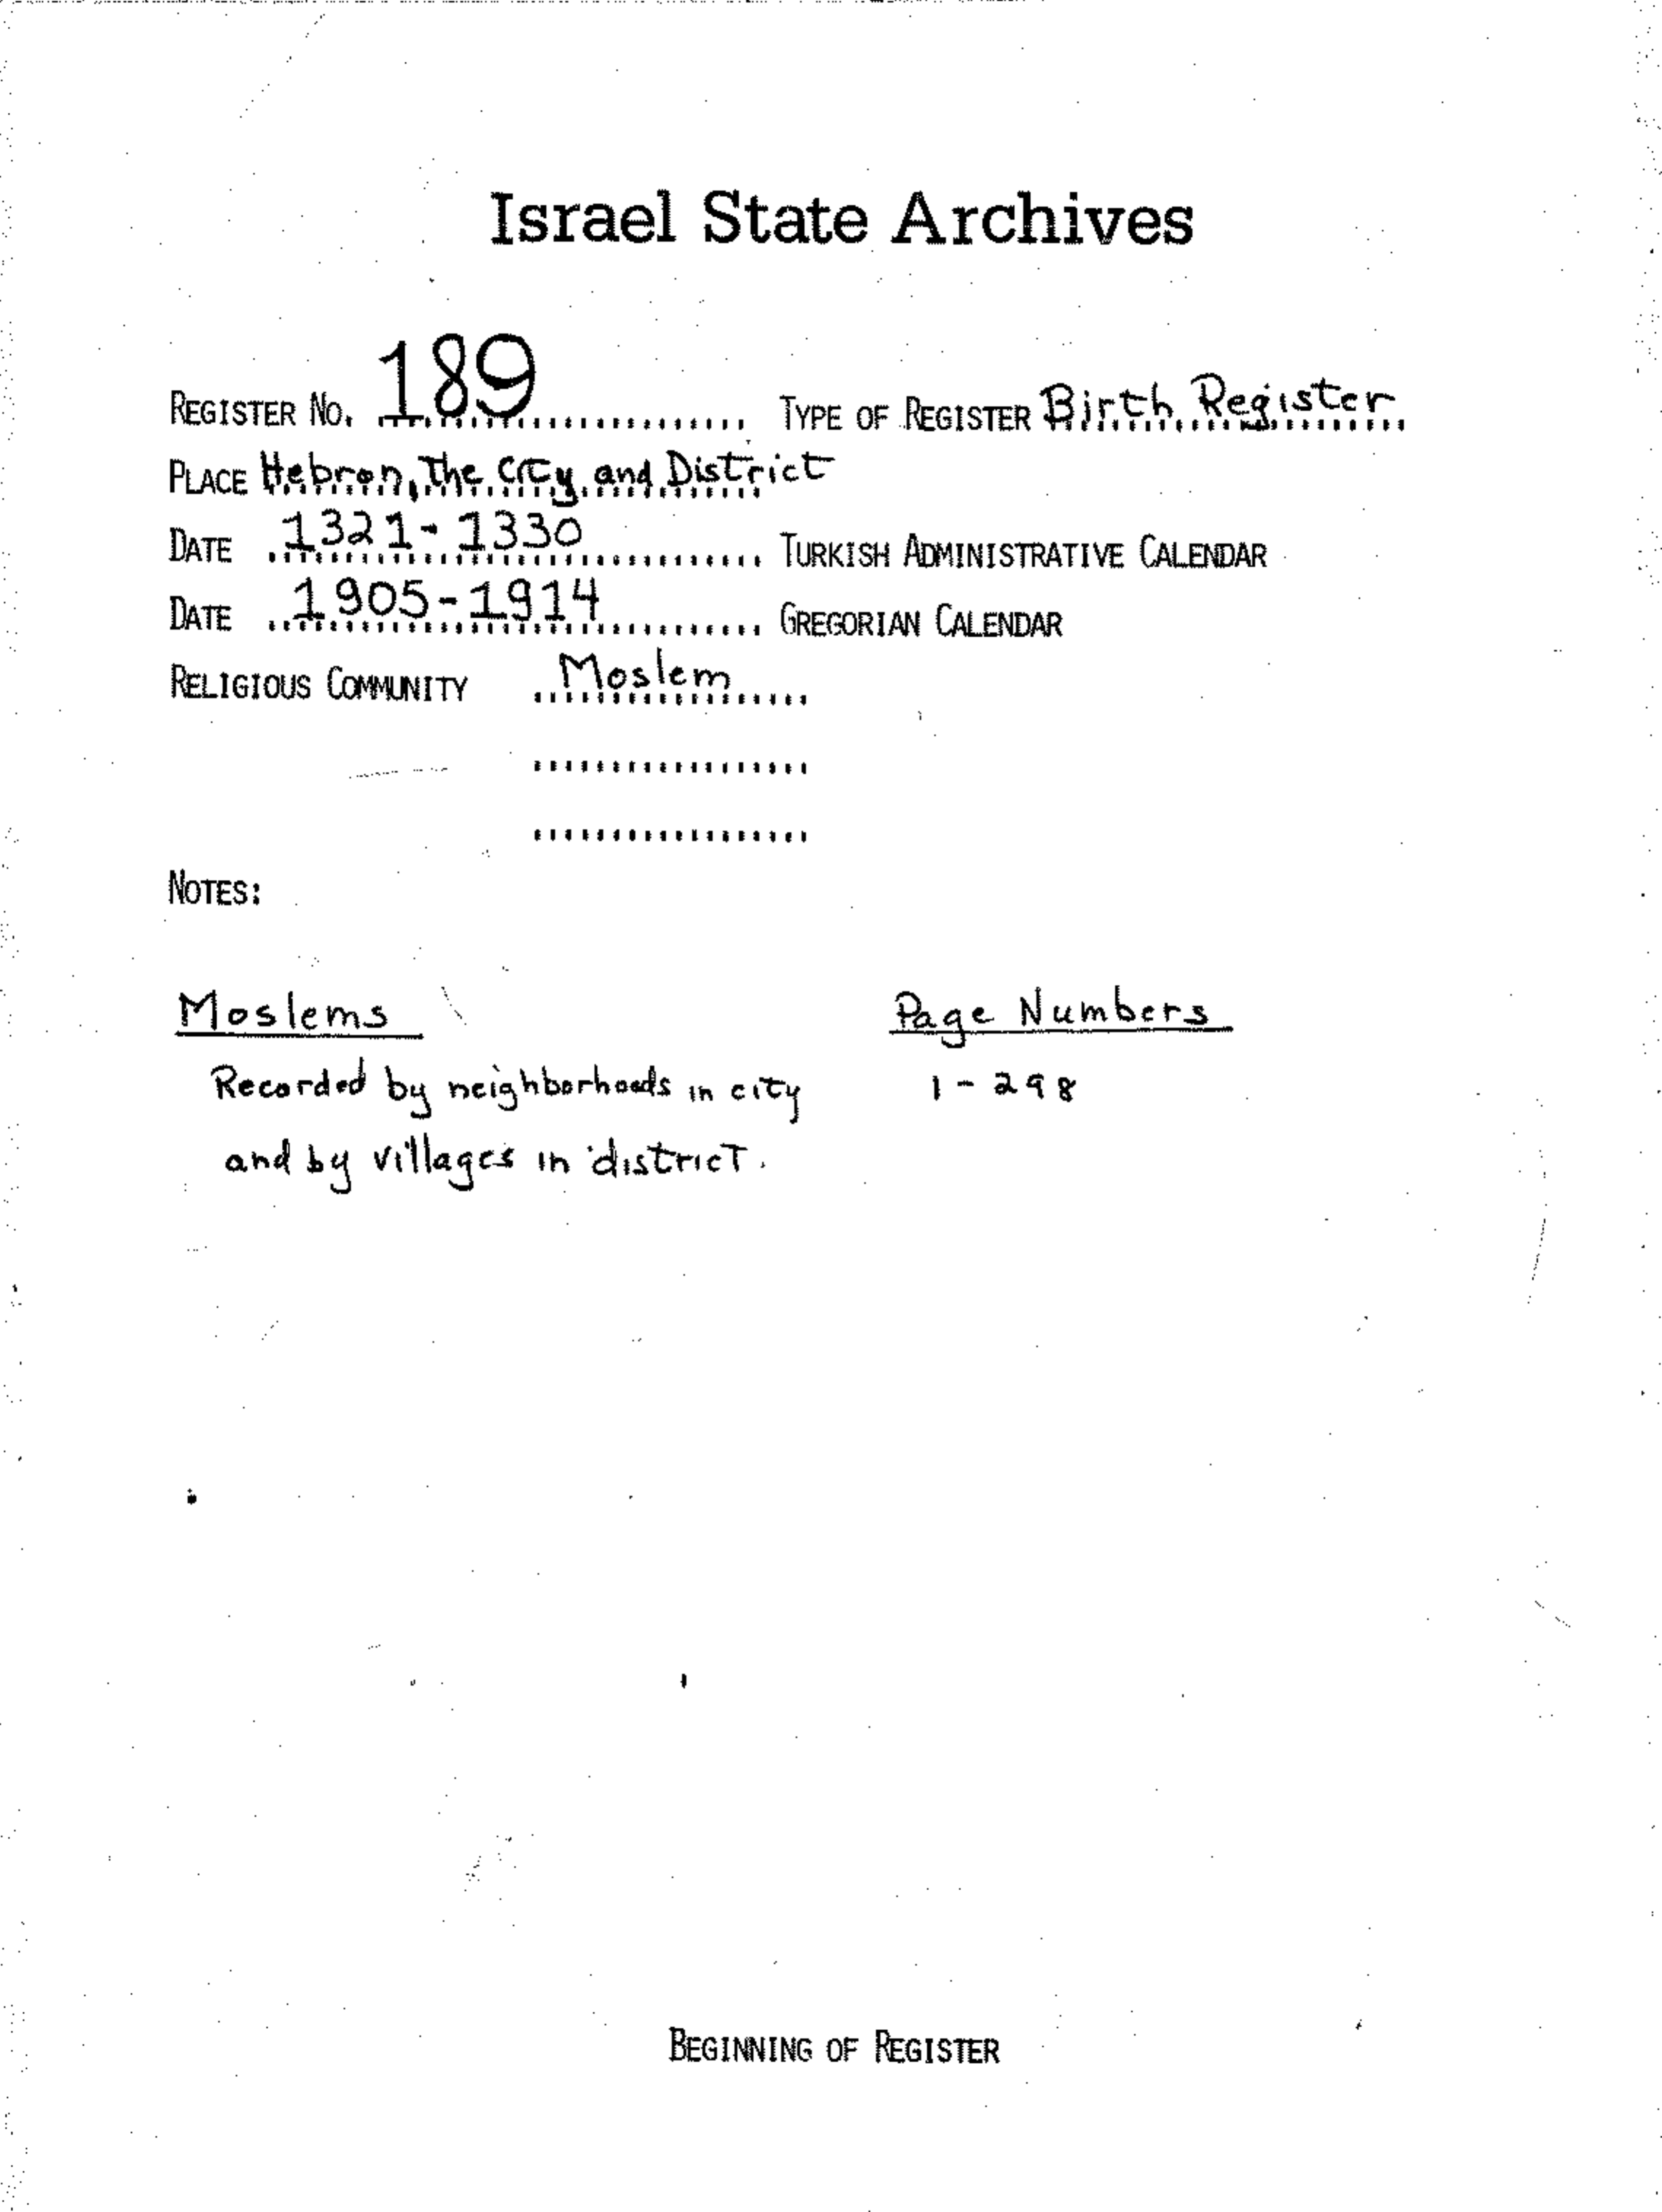 Israel State Archives
REGISTER NO. 189 TYPE OF REGISTER Birth Register
PLACE Hebron, The City and District
DATE 1321-1330 TURKISH ADMINISTRATIVE CALENDAR
DATE 1905-1914 GREGORIAN CALENDAR
RELIGIOUS COMMUNITY Moslem
NOTES:
Moslems Page Numbers
Recorded by neighborhoods in city 1-298
and by villages in district.
BEGINNING OF REGISTER